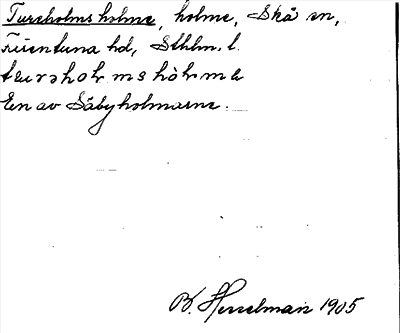 Tureholms holme, holme, Skå sn,
Färentuna hd, Sthlm. l.
En av Säbyholmarne.
B. Hesselman 1905